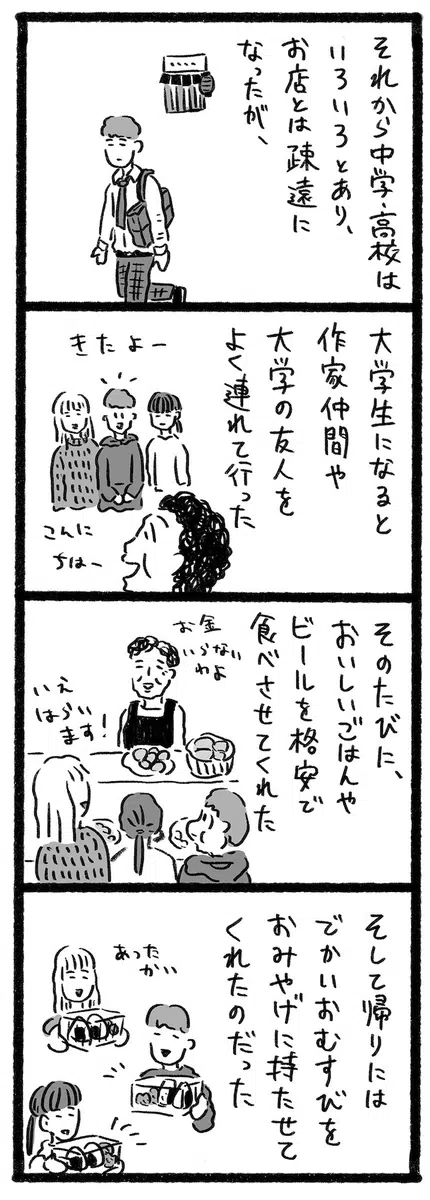 それから中学・高校は
いろいろとあり、
お店とは疎遠に
なったが、
大学生になると
作家仲間や
大学の友人を
よく連れて行った
きたよー
こんに
ちはー
そのたびに、
おいしいごはんや
ビールを格安で
食べさせてくれた
お金
いらない
わよ
いえ
はらい
ます!
そして帰りには
でかいおむすびを
おみやげに持たせて
くれたのだった
あった
かい